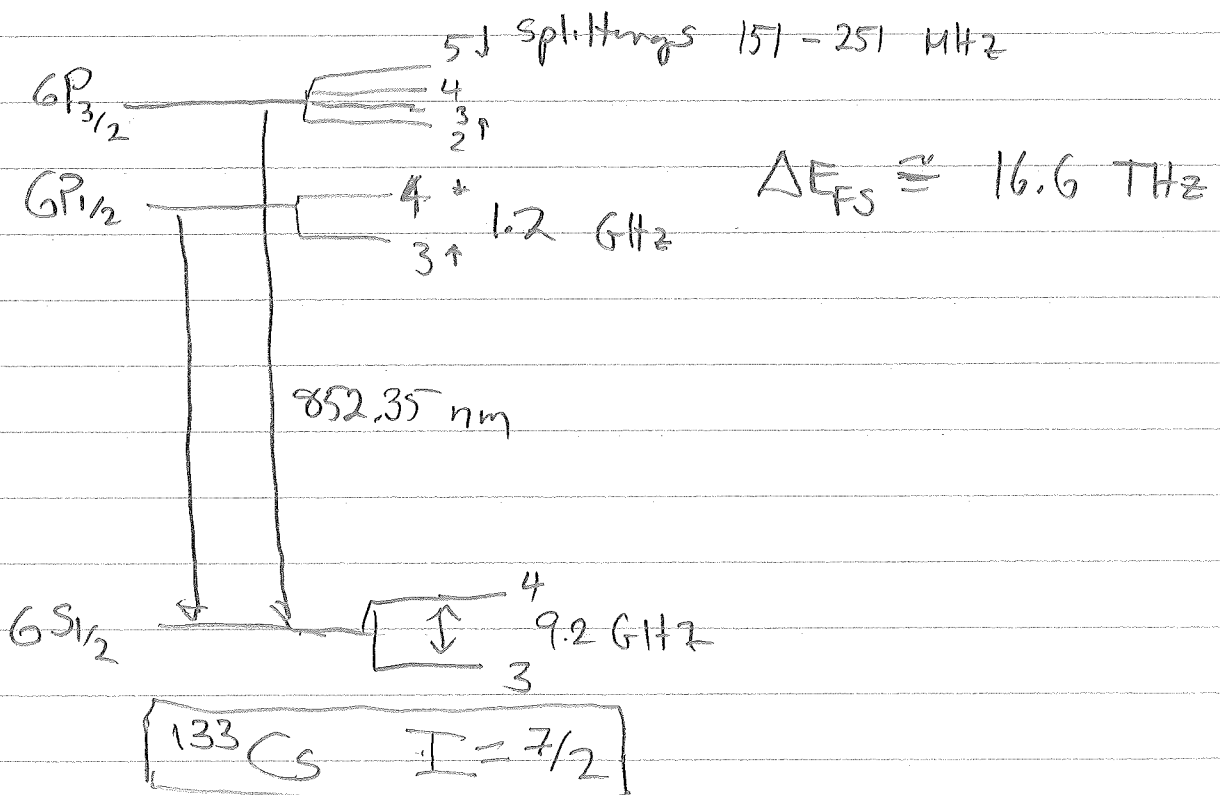 5↓ Splittings 151 - 251 MHz
6P3/2
4
3
2↑
ΔE_FS ≅ 16.6 THz
6P1/2
4 ↓
1.2 GHz
3 ↑
852.35 nm
4
6S1/2
9.2 GHz
3
133Cs I = 7/2